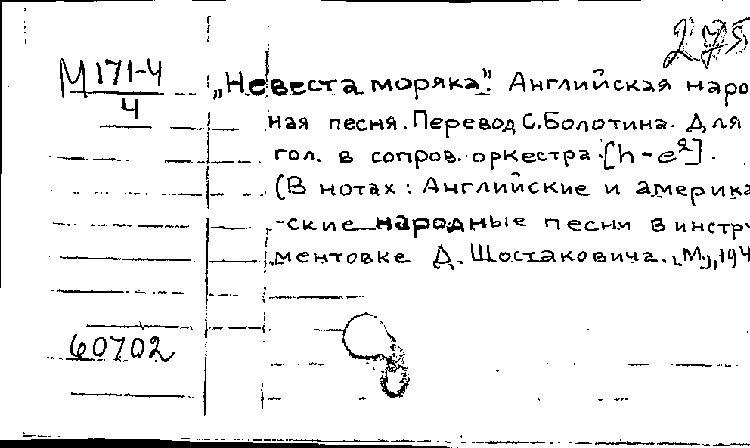 275
М 171-4
4
„Невеста моряка". Английская наро
ная песня. Перевод С. Болотина. Для
гол. в сопров. оркестра. [h-e²].
(В нотах: Английские и америка
-ские народные песни в инстру
ментовке Д. Шостаковича. [М.], 194
60702